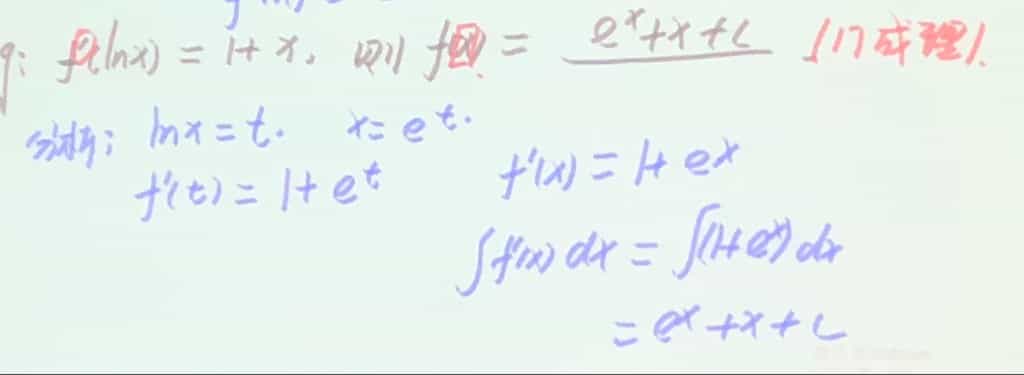 9: f'(lnx) = 1+x, 则 f(x) = e^x+x+c [17成理].
分析: lnx = t. x = e^t.
f'(t) = 1+e^t f'(x) = 1+e^x
∫f'(x)dx = ∫(1+e^x)dx
= e^x+x+c